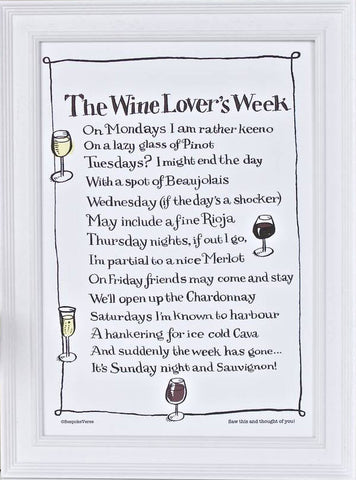 The Wine Lover's Week
On Mondays I am rather keeno
On a lazy glass of Pinot
Tuesdays? I might end the day
With a spot of Beaujolais
Wednesday (if the day's a shocker)
May include a fine Rioja
Thursday nights, if out I go,
I'm partial to a nice Merlot
On Friday friends may come and stay
We'll open up the Chardonnay
Saturdays I'm known to harbour
A hankering for ice cold Cava
And suddenly the week has gone...
It's Sunday night and Sauvignon!
©BespokeVerse
Saw this and thought of you!